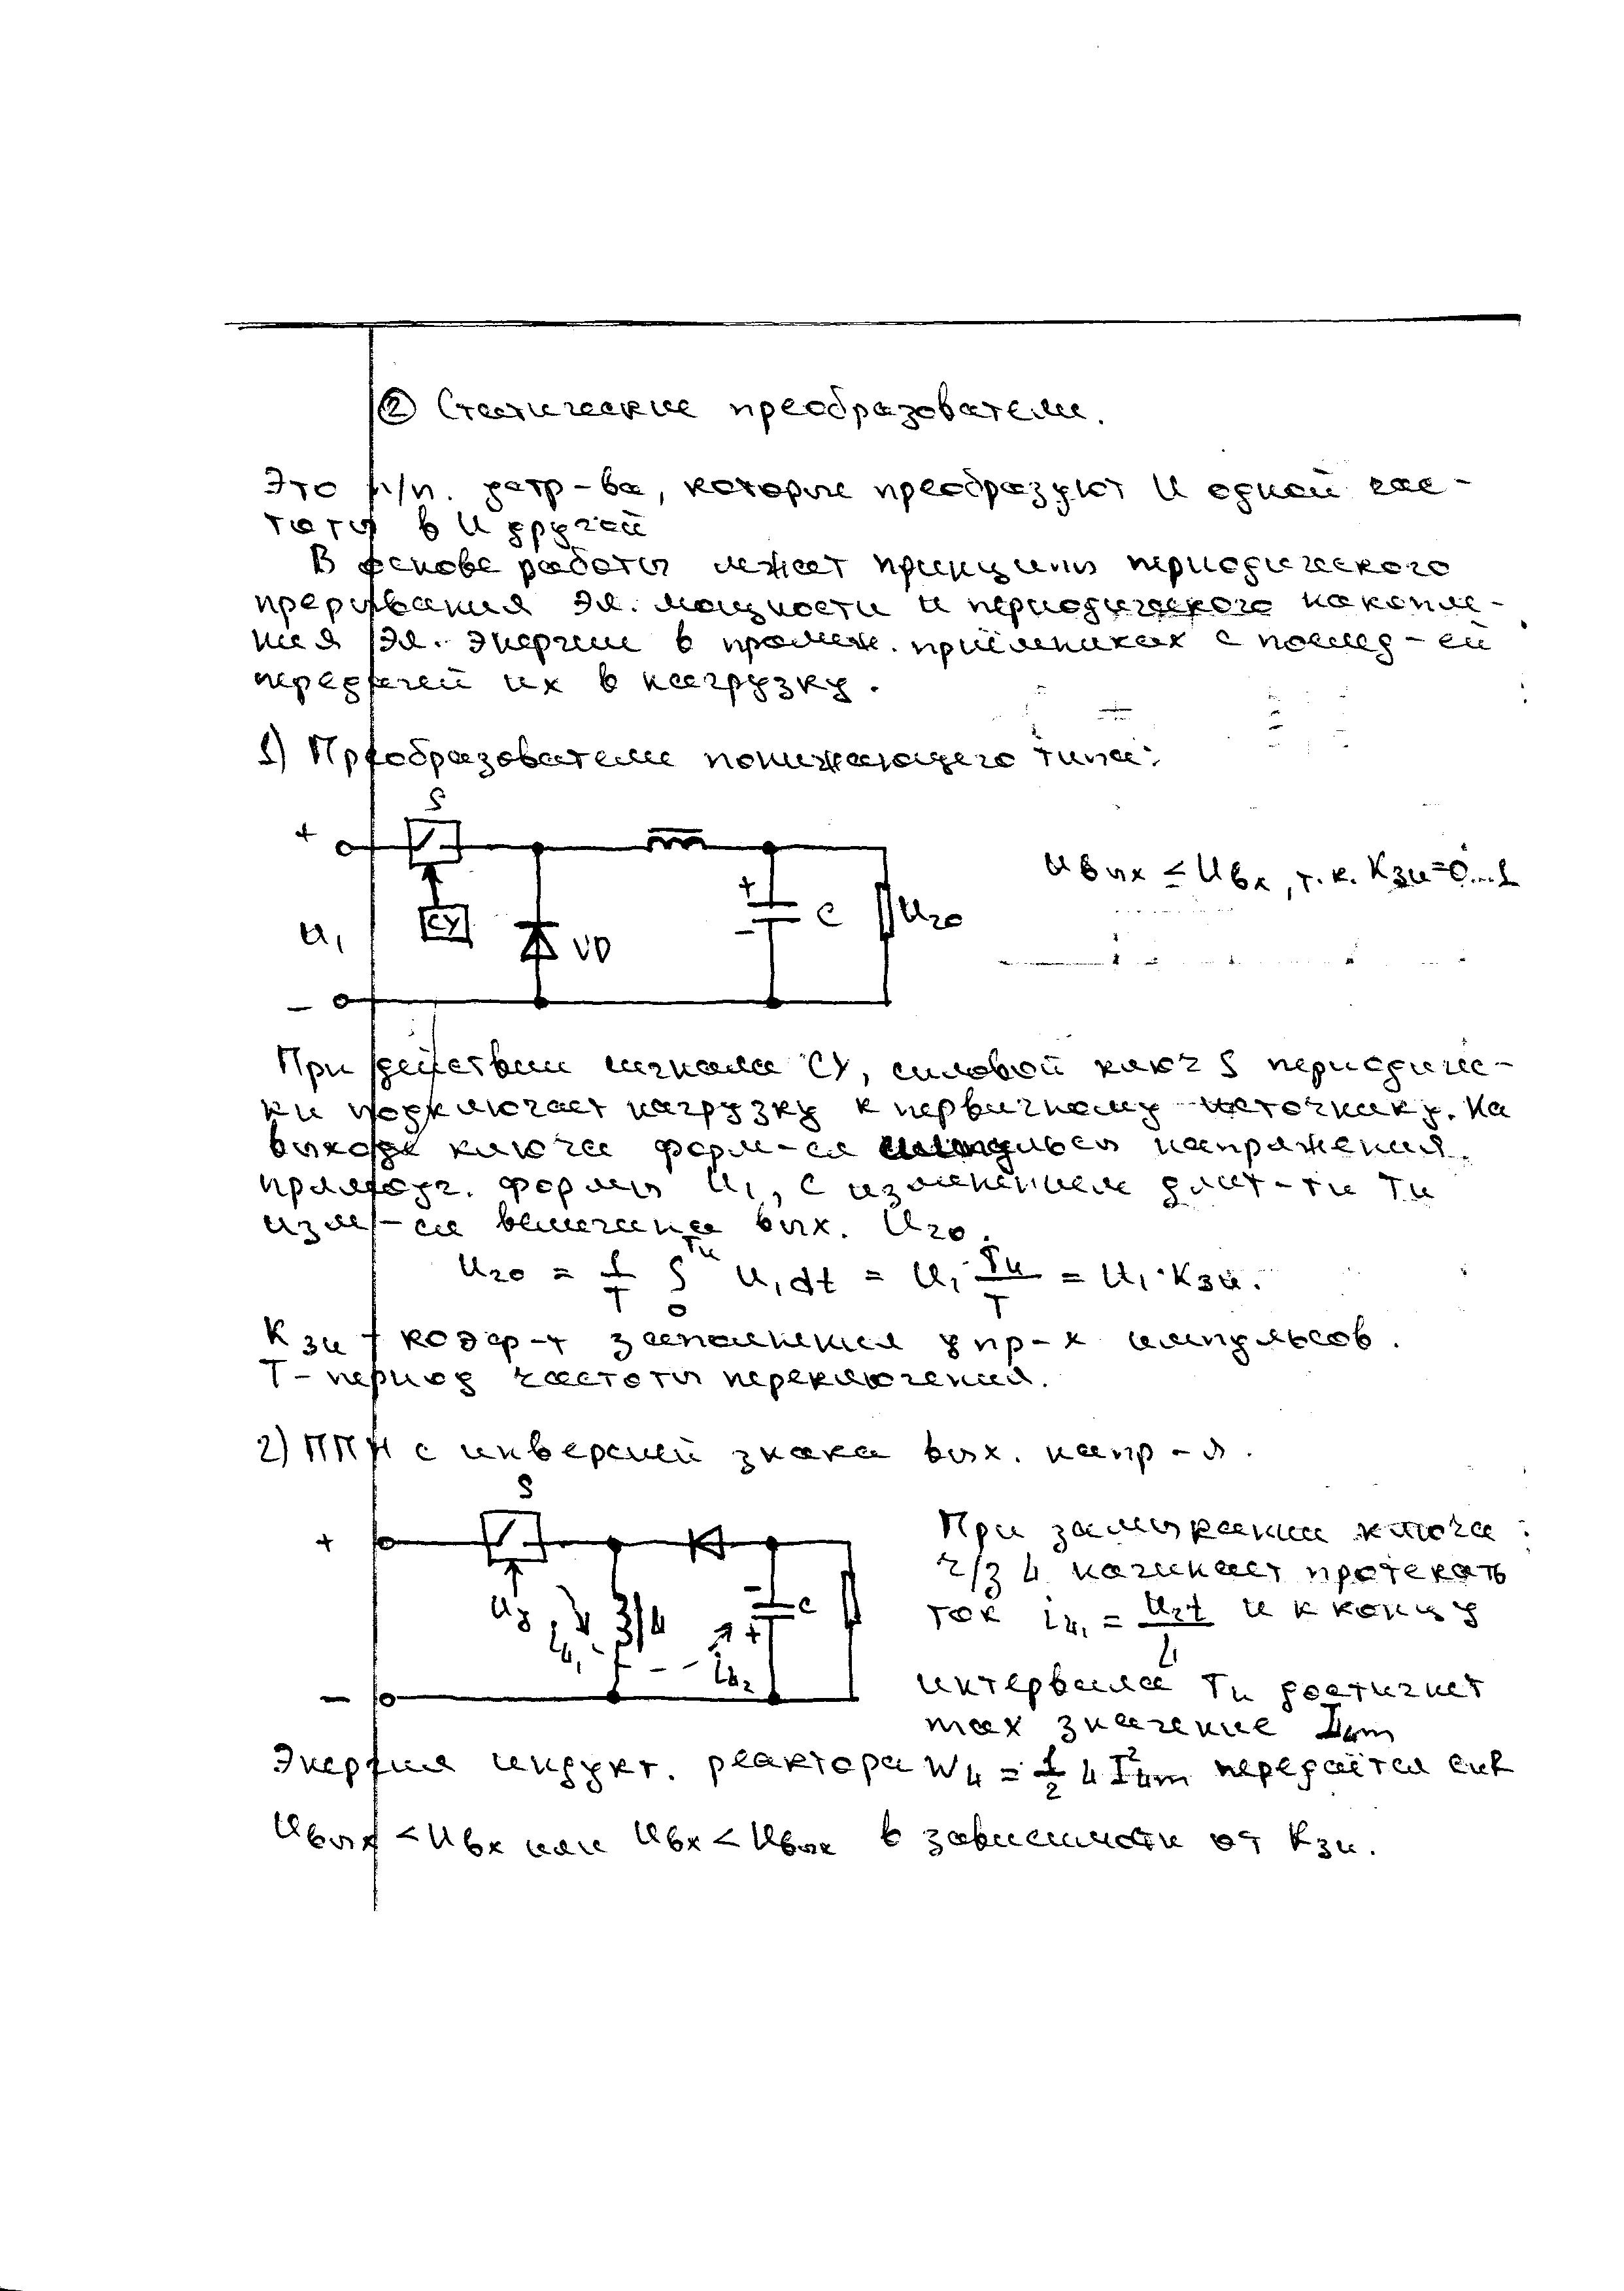 ② Статические преобразователи.
Это п/п. устр-ва, которые преобразуют U одной час-
тоты в U другой
В основе работы лежат принципы периодического
прерывания эл. мощности и периодического накопле-
ния эл. энергии в промеж. приёмниках с послед-ей
передачей их в нагрузку.
1) Преобразователи понижающего типа:
S
+
СУ
U₁
VD
+
-
C
U₂₀
-
Uвых ≤ Uвх, т.к. Кзи=0...1
При действии сигнала СУ, силовой ключ S периодичес-
ки подключает нагрузку к первичному источнику. На
выходе ключа форм-ся импульсы напряжения
прямоуг. формы U₁, с изменением длит-ти Tи
изм-ся величина вых. U₂₀.
U₂₀ = 1/T ∫₀^Tи U₁dt = U₁·Tи/T = U₁·Кзи.
Кзи - коэф-т заполнения упр-х импульсов.
T - период частоты переключения.
2) ППН с инверсией знака вых. напр-я.
S
+
Uу
iL₁
L
iL₂
-
+
C
-
При замыкании ключа
ч/з L начинает протекать
ток iL₁ = U₂t/L и к концу
интервала Tи достигнет
max значение ILm
Энергия индукт. реактора WL = 1/2 L I²Lm передаётся
Uвых < Uвх или Uвх < Uвых в зависимости от Кзи.